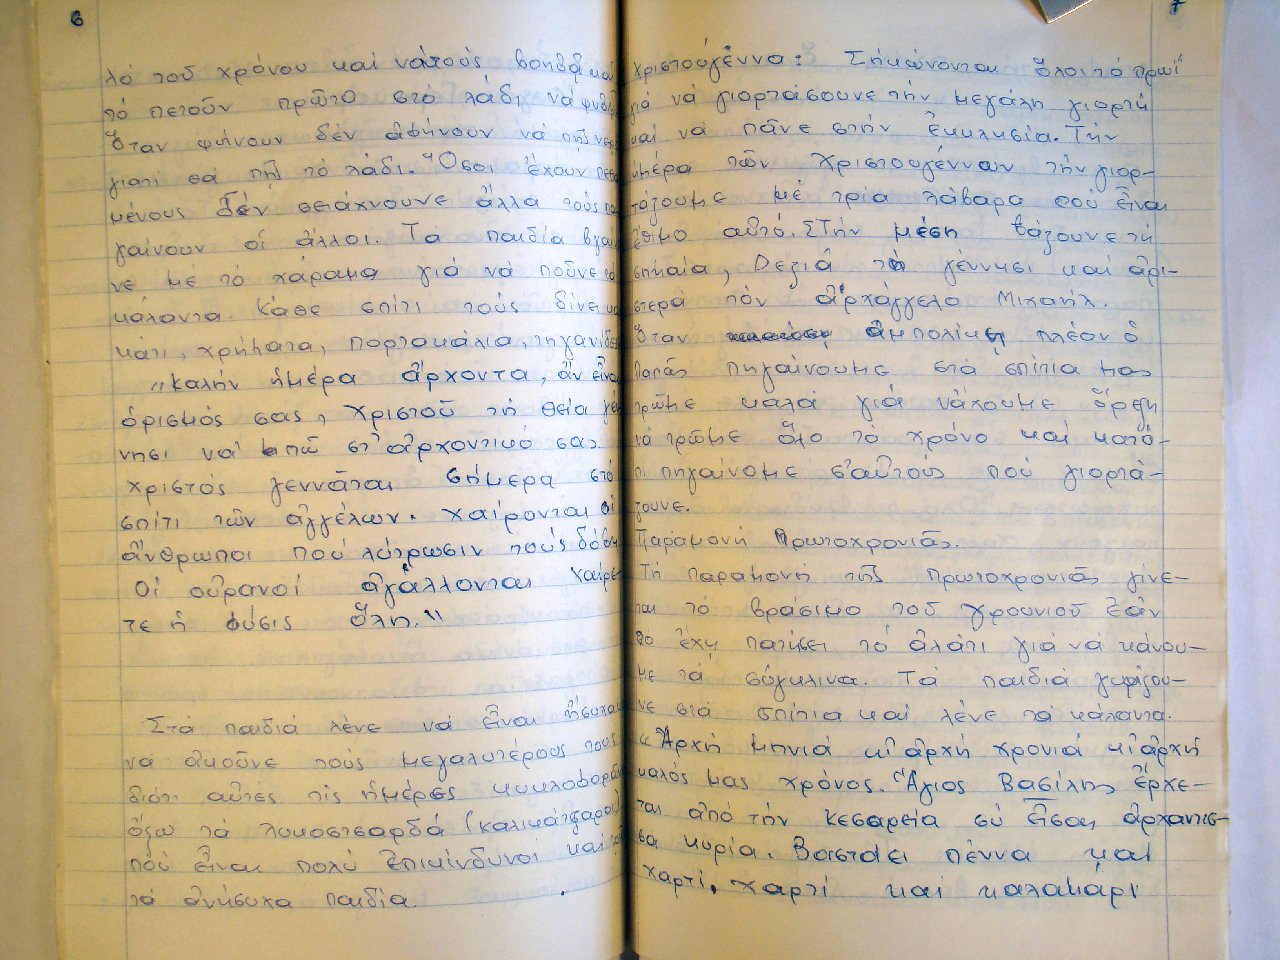 6
λό τοῦ χρόνου καί νά τούς βοηθᾷ καί
τό πετοῦν πρῶτο στό λάδι νά ψηθῇ
Ὅταν ψήνουν δέν ἀφήνουν νά πῇς νερό
γιατί θά πιῇ τό λάδι. Ὅσοι ἔχουν πεθα
μένους δέν φτιάχνουνε ἀλλά τούς πη
γαίνουν οἱ ἄλλοι. Τά παιδία βγαί
νε μέ τό χάραμα γιά νά ποῦνε τά
κάλαντα. Κάθε σπίτι τούς δίνει κα
κάτι, χρήματα, πορτοκάλια, τηγανίδες
"Καλήν ἡμέρα ἄρχοντα, ἄν εἶναι
ὁρισμός σας, Χριστοῦ τή θεία γέν
νησι νά πῶ στ' ἀρχοντικό σας.
Χριστός γεννᾶται σήμερα στό
σπίτι τῶν ἀγγέλων. Χαίρονται οἱ
ἄνθρωποι πού λύτρωσιν τούς δόθη
Οἱ οὐρανοί ἀγάλλονται χαίρε
τε ἡ φύσις ὅλη."
Στά παιδιά λένε νά εἶναι ἥσυχα
νά ἀκοῦνε τούς μεγαλυτέρους τους
διότι αὐτές τίς ἡμέρες κυκλοφοροῦν
ἔξω τά λυκοτσαρδά (καλικάτζαροι)
πού εἶναι πολύ ἐπικίνδυνοι καί
τά ἀνήσυχα παιδία.
7
Χριστούγεννα: Σηκώνονται ὅλοι τό πρωί
γιά νά γιορτάσουνε τήν μεγάλη γιορτή
καί νά πᾶνε στήν ἐκκλησία. Τήν
ἡμέρα τῶν Χριστουγέννων τήν γιορ-
τάζουμε μέ τρία λάβαρα πού εἶναι
ἔθιμο αὐτό. Στήν μέση βάζουνε τή
σπηλαία, Δεξιά τή γέννησι καί ἀρι-
στερά τόν ἀρχάγγελο Μιχαήλ.
Ὅταν ἀμπολίκη πλέον ὁ
Παπᾶς πηγαίνουμε στά σπίτια μας
τρῶμε καλά γιά νἄχουμε ὄρεξη
νά τρῶμε ὅλο τό χρόνο καί κατό-
πι πηγαίνομε σ' αὐτούς πού γιορτά-
ζουνε.
Παραμονή Πρωτοχρονιᾶς.
Τή παραμονή τῆς Πρωτοχρονιᾶς γίνε-
ται τό βράσιμο τοῦ γρουνιοῦ ἐάν
τό ἔχῃ πατήσει τό ἀλάτι γιά νά κάνου-
με τά σύγκλινα. Τά παιδιά γυρίζου-
νε στά σπίτια καί λένε τά κάλαντα.
"Ἀρχή μηνιά κι' ἀρχή χρονιά κι' ἀρχή
καλός μας χρόνος. Ἅγιος Βασίλης ἔρχε-
ται ἀπό τήν Κεσαρεία σύ εἶσαι ἀρχόντισ-
σα κυρία. Βαστάει πέννα καί
χαρτί, χαρτί καί καλαμάρι